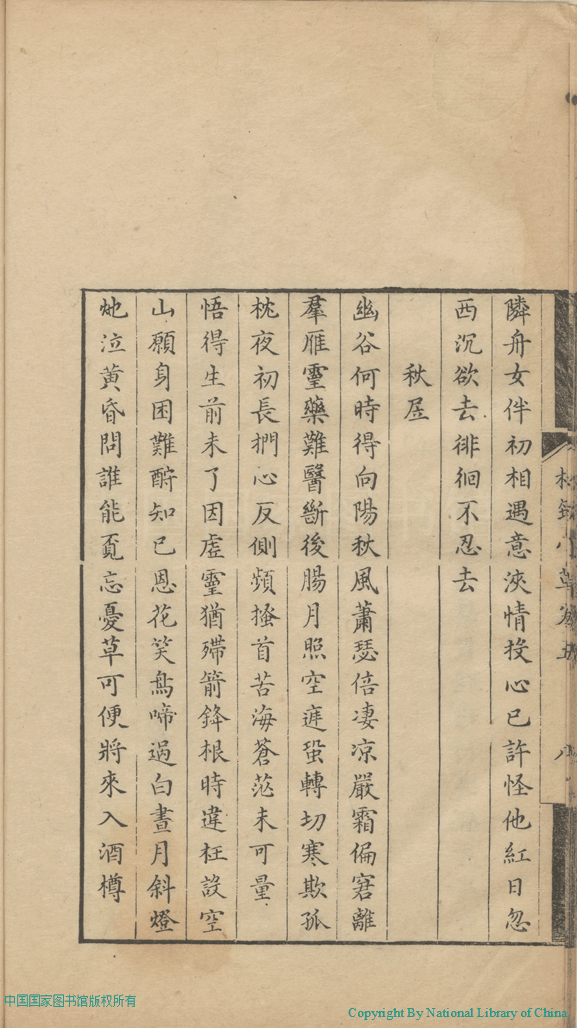 隣舟女伴初相遇意浹情投心已許怪他紅日忽
西沉欲去徘徊不忍去
秋居
幽谷何時得向陽秋風蕭瑟倍凄凉嚴霜偏窘離
羣雁靈藥難醫斷後腸月照空遲蛩轉切寒欺孤
枕夜初長捫心反側頻搔首苦海蒼茫未可量
悟得生前未了因虛靈猶殢箭鋒根時違枉設空
山願身困難酧知已恩花笑鳥啼過白晝月斜燈
灺泣黃昏問誰能覔忘憂草可便將來入酒樽
小草卷五
八
中国国家图书馆版权所有
Copyright By National Library of China